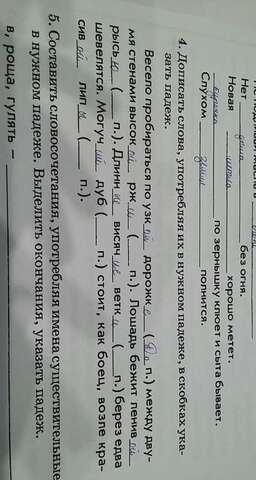 Нет дыма без огня.
Новая метла хорошо метет.
Курочка по зернышку клюет и сыта бывает.
Слухом земля полнится.
4. Дописать слова, употребляя их в нужном падеже, в скобках ука-
зать падеж.
Весело пробираться по узкой дорожке (Д. п.) между дву-
мя стенами высокой ржи (___ п.). Лошадь бежит ленивой
рысью (___ п.). Длинные висячие ветки (___ п.) берез едва
шевелятся. Могучий дуб (___ п.) стоит, как боец, возле кра-
сивой липы (___ п.).
5. Составить словосочетания, употребляя имена существительные
в нужном падеже. Выделить окончания, указать падеж.
в, роща, гулять –